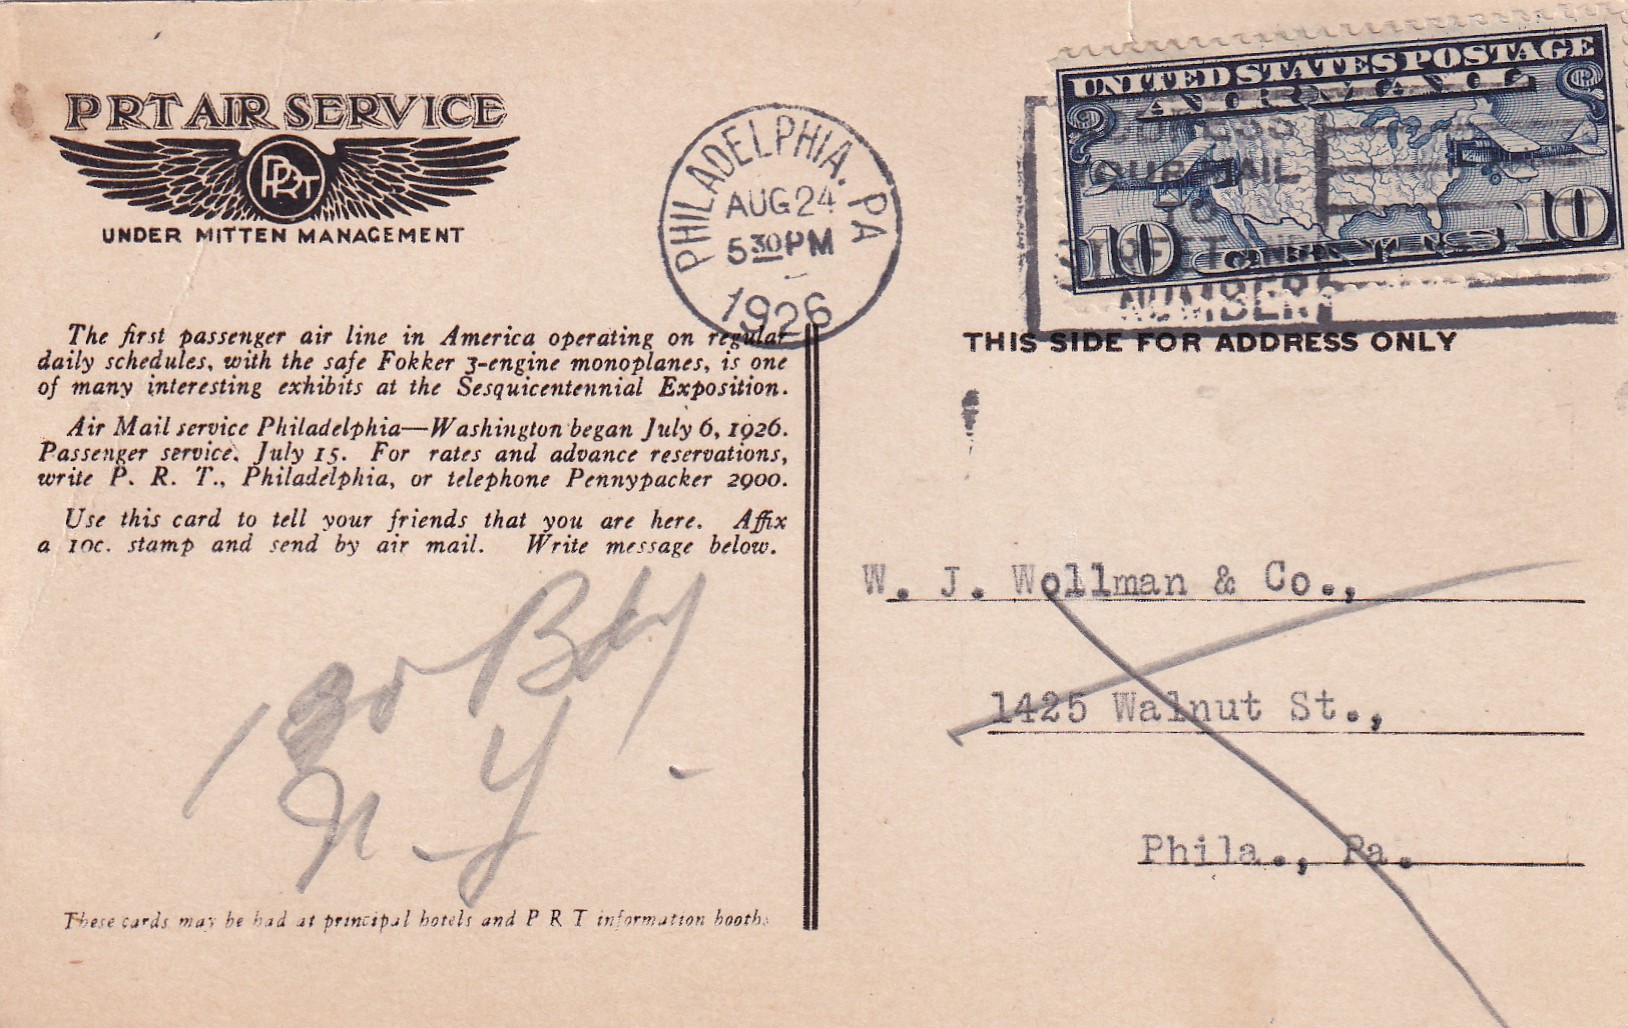 PRT AIR SERVICE
PRT
UNDER MITTEN MANAGEMENT
The first passenger air line in America operating on regular
daily schedules, with the safe Fokker 3-engine monoplanes, is one
of many interesting exhibits at the Sesquicentennial Exposition.
Air Mail service Philadelphia—Washington began July 6, 1926.
Passenger service, July 15. For rates and advance reservations,
write P. R. T., Philadelphia, or telephone Pennypacker 2900.
Use this card to tell your friends that you are here. Affix
a 10c. stamp and send by air mail. Write message below.
N.Y
These cards may be had at principal hotels and P R T information booths
PHILADELPHIA. PA
AUG 24
5 30 PM
1926
UNITED STATES POSTAGE
10 CENTS 10
YOUR MAIL
TO
STREET AND
NUMBER
THIS SIDE FOR ADDRESS ONLY
W. J. Wollman & Co.,
1425 Walnut St.,
Phila., Pa.